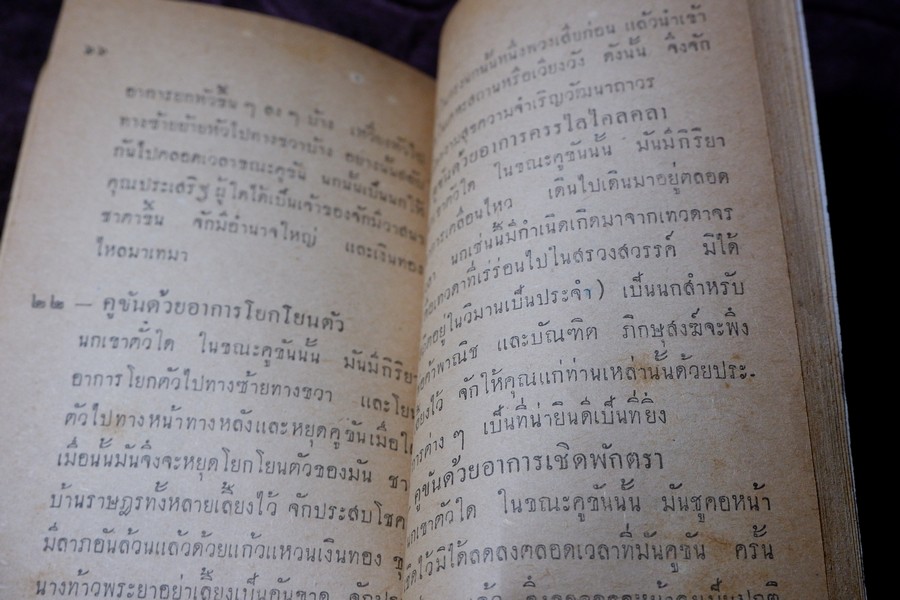 ๑๖
อาการยกหัวขึ้น ๆ ลง ๆ บ้าง
ทางซ้ายย้ายหัวไปทางขวาบ้าง
กันไปตลอดเวลาขณะคูขัน นกนั้นเป็นนกให้
คุณประเสริฐ ผู้ใดได้เป็นเจ้าของจักมีวาสนา
ชาตาขึ้น จักมีอำนาจใหญ่ และเงินทอง
ไหลมาเทมา
๒๒ — คูขันด้วยอาการโยกโยนตัว
นกเขาตัวใด ในขณะคูขันนั้น มันมีกิริยา
อาการโยกตัวไปทางซ้ายทางขวา และโยน
ตัวไปทางหน้าทางหลังและหยุดคูขันเมื่อใ
เมื่อนั้นมันจึงจะหยุดโยกโยนตัวของมัน ชา
บ้านราษฎรทั้งหลายเลี้ยงไว้ จักประสบโชค
มีลาภอันล้วนแล้วด้วยแก้วแหวนเงินทอง
นางท้าวพระยาอย่าเลี้ยงเป็นอันขาด
หนึ่งพวงเสียก่อน แล้วนำเข้า
สถานหรือเวียงวัง ดังนั้น จึงจัก
สุขความจำเริญวัฒนาถาวร
คูขันด้วยอาการครรไลไคลคลา
นกเขาตัวใด ในขณะคูขันนั้น มันมีกิริยา
การเคลื่อนไหว เดินไปเดินมาอยู่ตลอด
นกเช่นนี้มีกำเนิดเกิดมาจากเทวดาจร
คือเทวดาที่เร่ร่อนไปในสรวงสวรรค์ มิได้
สถิตอยู่ในวิมานเป็นประจำ) เป็นนกสำหรับ
พ่อค้าพาณิช และบัณฑิต ภิกษุสงฆ์จะพึง
เลี้ยงไว้ จักให้คุณแก่ท่านเหล่านั้นด้วยประ-
การต่าง ๆ เป็นที่น่ายินดีเป็นที่ยิ่ง
คูขันด้วยอาการเชิดพักตรา
นกเขาตัวใด ในขณะคูขันนั้น มันชูคอหน้า
เชิดไว้มิได้ลดลงตลอดเวลาที่มันคูขัน ครั้น